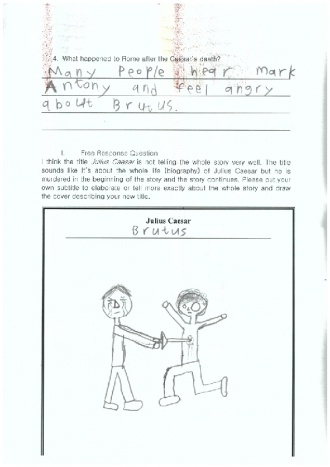 4. What happened to Rome after the Caesar's death?
Many People hear Mark
Antony and feel angry
about Brutus.
I. Free Response Question
I think the title Julius Caesar is not telling the whole story very well. The title
sounds like it's about the whole life (biography) of Julius Caesar but he is
murdered in the beginning of the story and the story continues. Please put your
own subtitle to elaborate or tell more exactly about the whole story and draw
the cover describing your new title.
Julius Caesar
Brutus